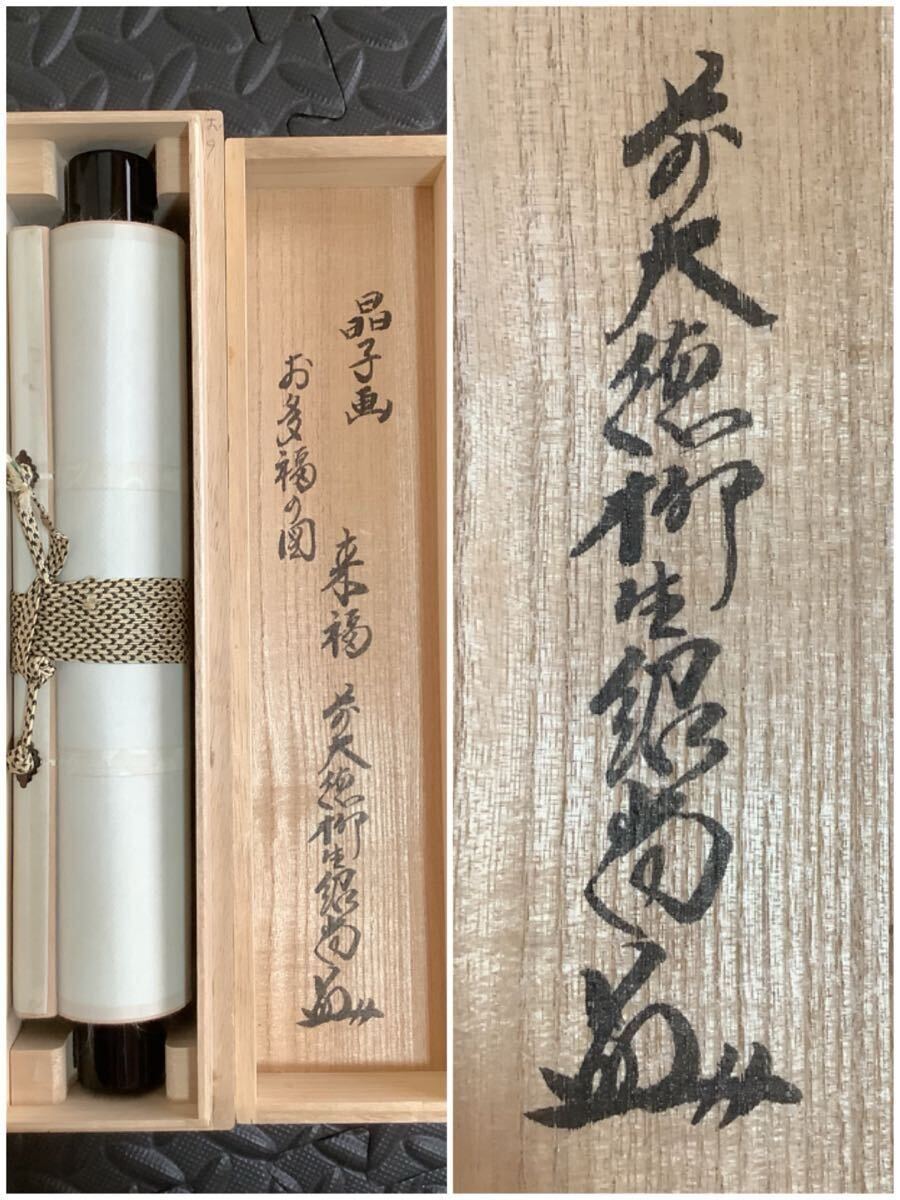 晶子画
お多福の図
来福
前大徳柳生紹尚
前大徳柳生紹尚